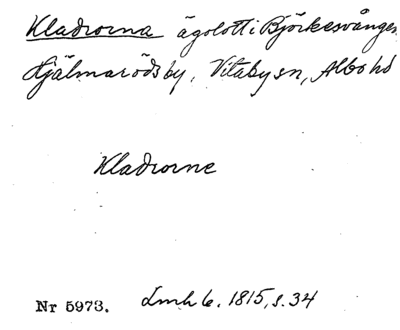 Kladrorna ägolott i Björkesvången
Hjälmarödsby, Vitaby sn, Albo hd
Kladrorne
Nr 5973. Lmh 6. 1815, s. 34